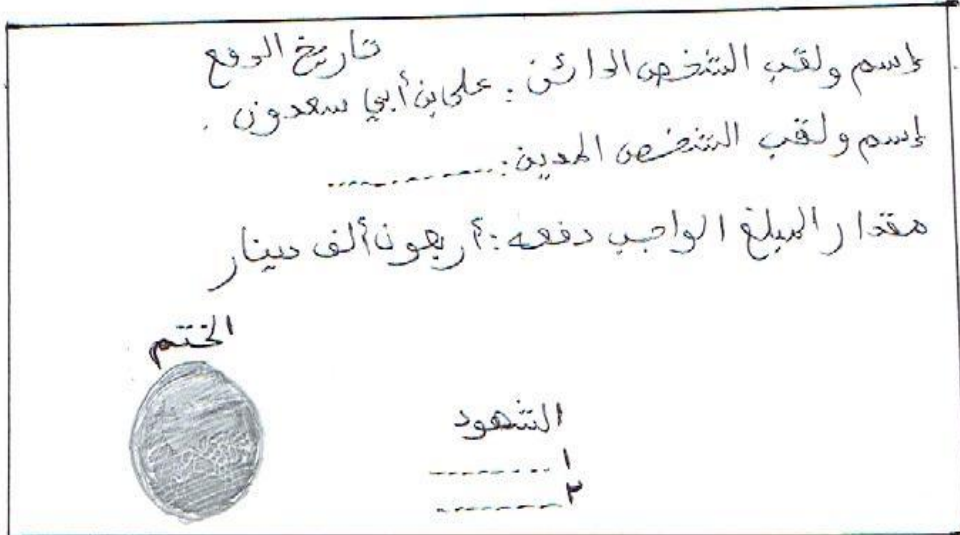 تاريخ الدفع
إسم ولقب الشخص الدائن: علي بن أبي سعدون.
إسم ولقب الشخص المدين: ............
مقدار المبلغ الواجب دفعه: أربعون ألف دينار
الختم
الشهود
١ ............
٢ ............